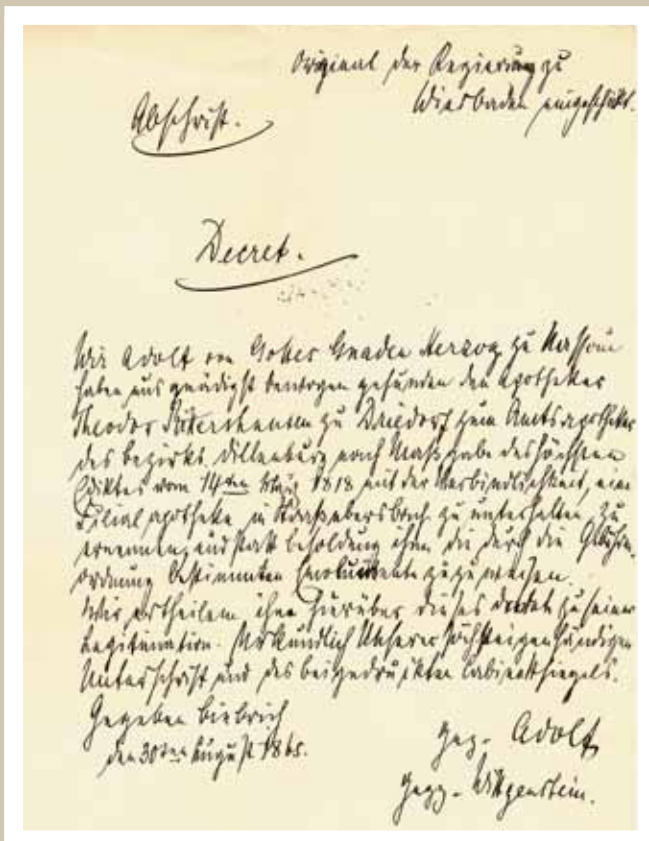 Original der Regierung zu
Wiesbaden eingeschickt.
Abschrift.
Decret.
Wir Adolf von Gottes Gnaden Herzog zu Nassau
haben uns gnädigst bewogen gefunden den Apotheker
Theodor zu Driedorf zum Amtsapotheker
des bezirks Dillenburg nach Maßgabe des höchsten
Ediktes vom 14ten März 1818 mit der Verbindlichkeit, eine
Filialapotheke in Straßebersbach zu unterhalten, zu
ernennen, und statt besoldung ihm die durch die
ordnung bestimmten Emolumente zuzuweisen.
Wir ertheilen ihm hierüber dieses decret zu seiner
Legitimation. Urkundlich Unserer höchsteigenhändigen
Unterschrift und des beigedruckten Cabinettsiegels.
Gegeben Biebrich
den 30ten August 1865.
gez. Adolf
gegz. Wittgenstein.